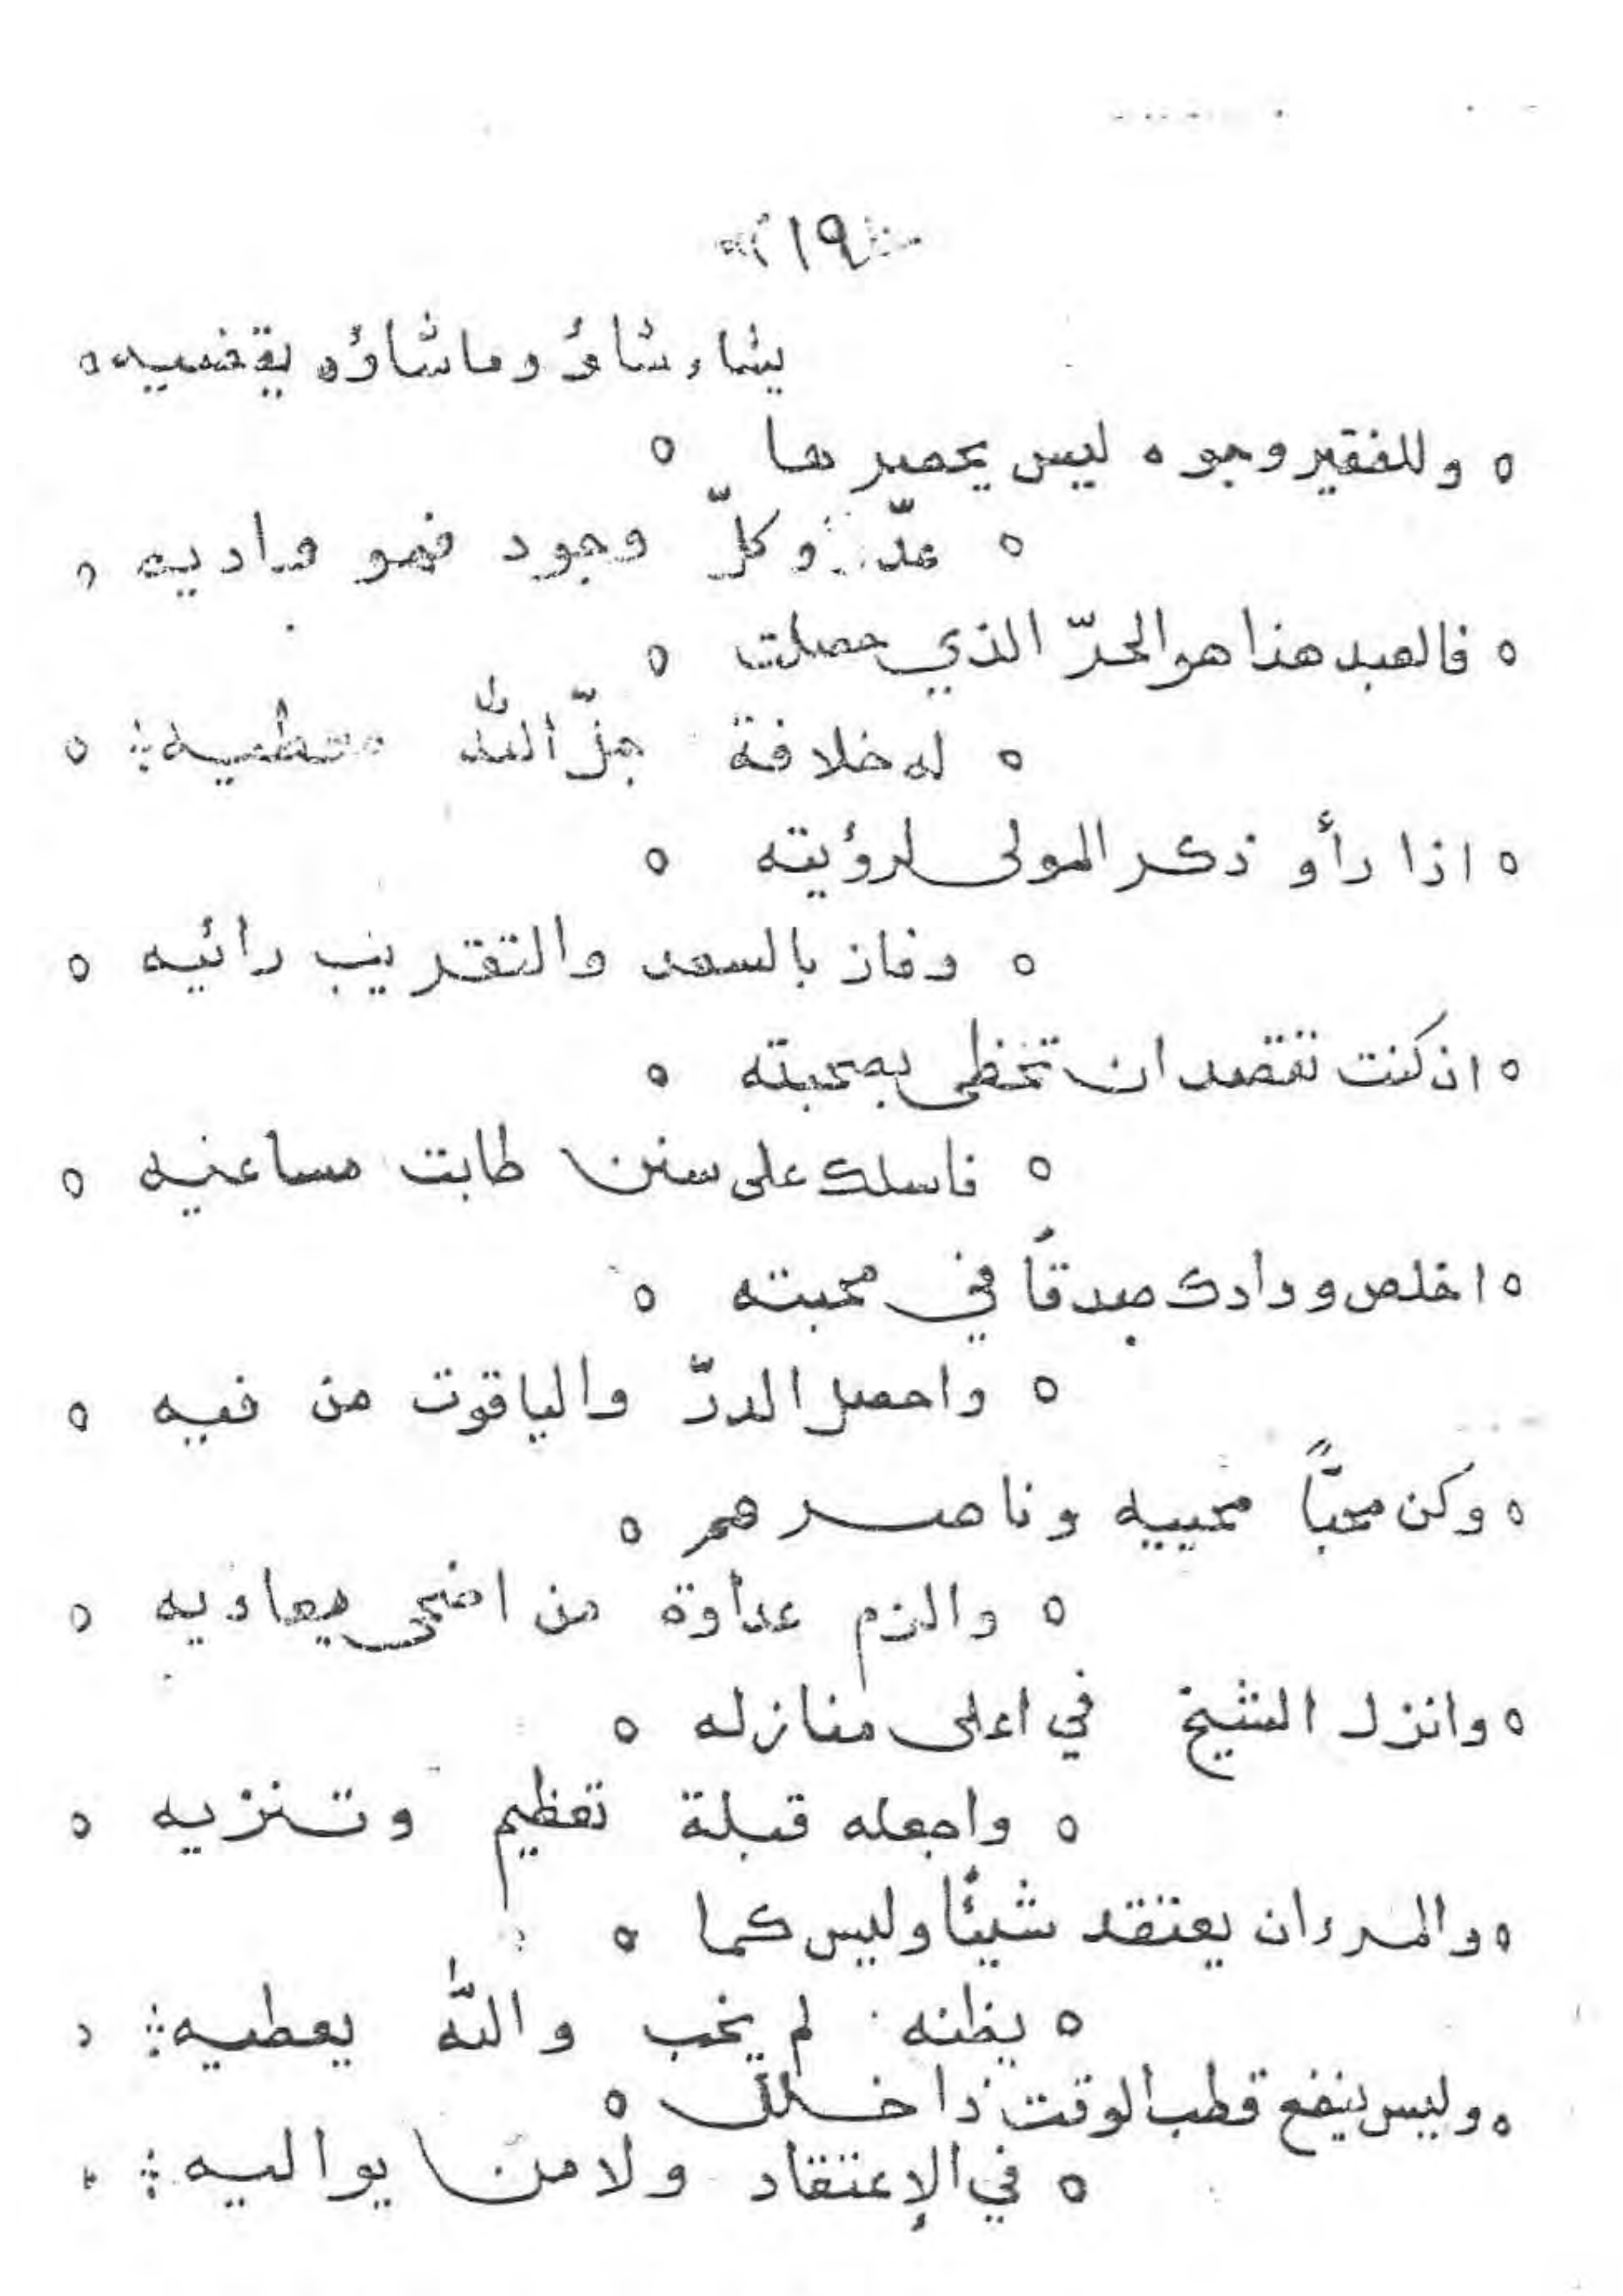 ١٩
يشاء شاؤ وما شاؤه يقضيه ه
ه وللفقير وجوه ليس يحصرها ه
ه عدّ وكلّ وجود فهو واديه ه
ه فالعبد هذا هو الحرّ الذي حصلت ه
ه له خلافة جلّ الله معطيه ه
ه اذا رأو ذكر المولى لرؤيته ه
ه وفاز بالسعد والتقريب رائيه ه
ه اذ كنت تقصد ان تحظى بصحبته ه
ه فاسلك على سنن طابت مساعيه ه
ه اخلص ودادك صدقاً في محبته ه
ه واحصل الدرّ والياقوت من فيه ه
ه وكن محبّاً محبيه وناصرهم ه
ه والزم عداوة من اضحى يعاديه ه
ه وانزل الشيخ في اعلى منازله ه
ه واجعله قبلة تعظيم وتنزيه ه
ه والمرء ان يعتقد شيئاً وليس كما ه
ه يظنه لم يخب والله يعطيه ه
ه وليس ينفع قطب الوقت ذا خلل ه
ه في الإعتقاد ولا من يواليه ه